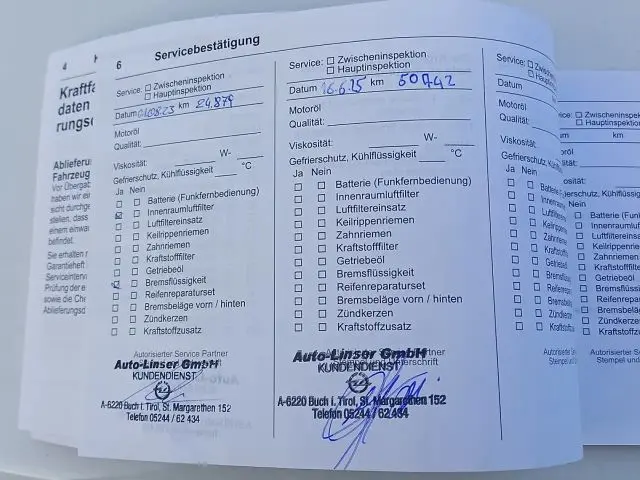 4
Kraftfa
daten
rungsc
Ablieferu
Fahrzeug
Vor Übergat
haben wir ei
sicht durchge
stellen, dass
einem einwa
befindet.
Sie erhalten
Garantieheft
Serviceinterv
Prüfung der e
sowie die Che
Ablieferungsd
6 Servicebestätigung
Service: Zwischeninspektion
Hauptinspektion
Datum 01.08.23 km 24.879
Motoröl
Qualität:
Viskosität: W-
Gefrierschutz, Kühlflüssigkeit °C
Ja Nein
Batterie (Funkfernbedienung)
Innenraumluftfilter
Luftfiltereinsatz
Keilrippenriemen
Zahnriemen
Kraftstofffilter
Getriebeöl
Bremsflüssigkeit
Reifenreparaturset
Bremsbeläge vorn / hinten
Zündkerzen
Kraftstoffzusatz
Autorisierter Service Partner
Auto-Linser GmbH
KUNDENDIENST
A-6220 Buch i. Tirol, St. Margarethen 152
Telefon 05244 / 62 434
Service: Zwischeninspektion
Hauptinspektion
Datum 16.6.25 km 50742
Motoröl
Qualität:
Viskosität: W-
Gefrierschutz, Kühlflüssigkeit °C
Ja Nein
Batterie (Funkfernbedienung)
Innenraumluftfilter
Luftfiltereinsatz
Keilrippenriemen
Zahnriemen
Kraftstofffilter
Getriebeöl
Bremsflüssigkeit
Reifenreparaturset
Bremsbeläge vorn / hinten
Zündkerzen
Kraftstoffzusatz
Autorisierter Service Partner
Stempel und Unterschrift
Auto-Linser GmbH
KUNDENDIENST
A-6220 Buch i. Tirol, St. Margarethen 152
Telefon 05244 / 62 434
Service: Zwischen
Hauptins
Datum
Motoröl
Qualität:
Viskosität:
Gefrierschutz, Kühlflüssig
Ja Nein
Batterie
Innenra
Luftfilte
Keilripp
Zahnrie
Kraftsto
Getriebe
Bremsflü
Reifenrep
Bremsbelä
Zündkerz
Kraftstoffz
Autorisierter Se
Stempel un
Zwischeninspekti
Hauptinspektion
km
Qualität:
Nein
Batterie (Funkf
Innenraumluftf
Luftfiltereinsatz
Keilrippenrieme
Zahnriemen
Kraftstofffilter
Getriebeöl
Bremsflüssigkei
Reifenreparatu
Bremsbeläge
Zündkerzen
Kraftstoffzusatz
Autorisierter Service
Stempel und